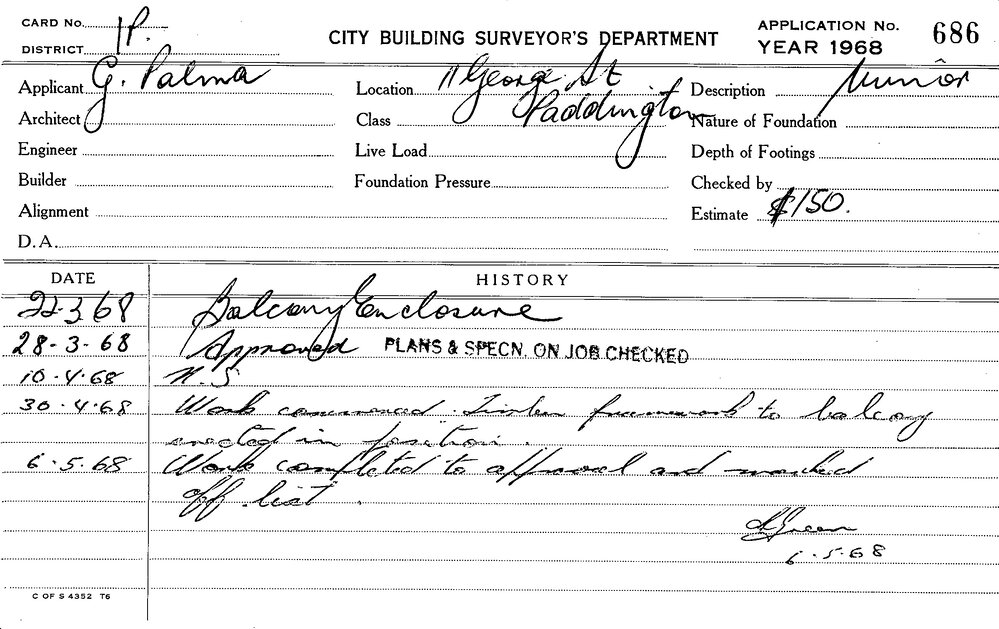 CARD No. CITY BUILDING SURVEYOR'S DEPARTMENT APPLICATION No. 686
DISTRICT 1P. YEAR 1968
Applicant G. Palma Location 11 George St Description Minor
Architect Class Paddington Nature of Foundation
Engineer Live Load Depth of Footings
Builder Foundation Pressure Checked by
Alignment Estimate $150.
D.A.
DATE HISTORY
22.3.68 Balcony Enclosure
28-3-68 Approved PLANS & SPECN. ON JOB CHECKED
10.4.68 N.S
30.4.68 Work commenced. Timber framework to balcony
erected in position.
6.5.68 Work completed to approval and marked
off list.
Green
6.5.68
C OF S 4352 T6